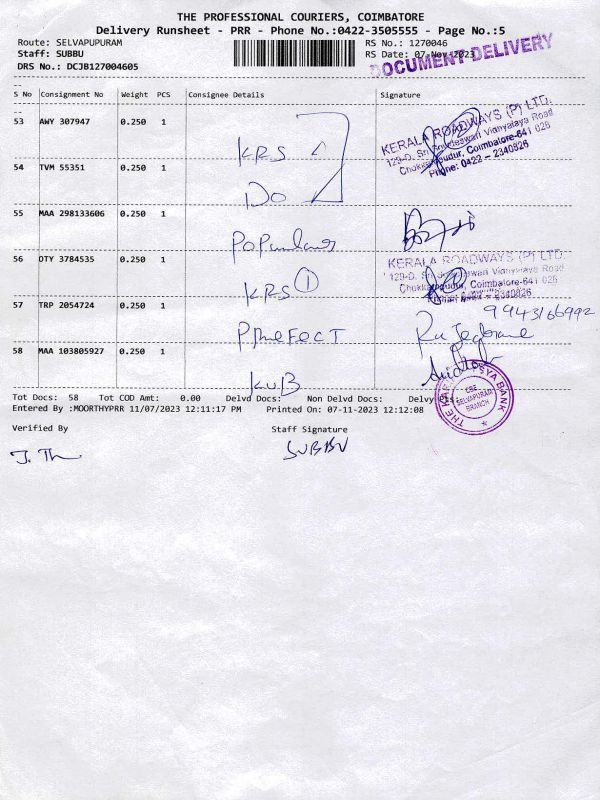 THE PROFESSIONAL COURIERS, COIMBATORE
Delivery Runsheet - PRR - Phone No.:0422-3505555 - Page No.:5
Route: SELVAPUPURAM
RS No.: 1270046
Staff: SUBBU
RS Date: 07-Nov-2023
DRS No.: DCJB127004605
DOCUMENT DELIVERY
S No Consignment No Weight PCS Consignee Details Signature
53 AWY 307947 0.250 1
KRS
KERALA ROADWAYS (P) LTD.
129-D, Sri Vidhyalaya Road
Coimbatore-641 026
Phone: 0422 – 2340826
54 TVM 55351 0.250 1
Do
55 MAA 298133606 0.250 1
56 OTY 3784535 0.250 1
KRS 1
KERALA ROADWAYS (P) LTD.
129-D, Vidhyalaya Road
Coimbatore-641 026
2340826
57 TRP 2054724 0.250 1
9943166992
58 MAA 103805927 0.250 1
KUB
Tot Docs: 58 Tot COD Amt: 0.00 Delvd Docs: Non Delvd Docs: Delvy Pts:
Entered By :MOORTHYPRR 11/07/2023 12:11:17 PM Printed On: 07-11-2023 12:12:08
CBE
SELVAPURAM
BRANCH
Verified By Staff Signature
SUBBU